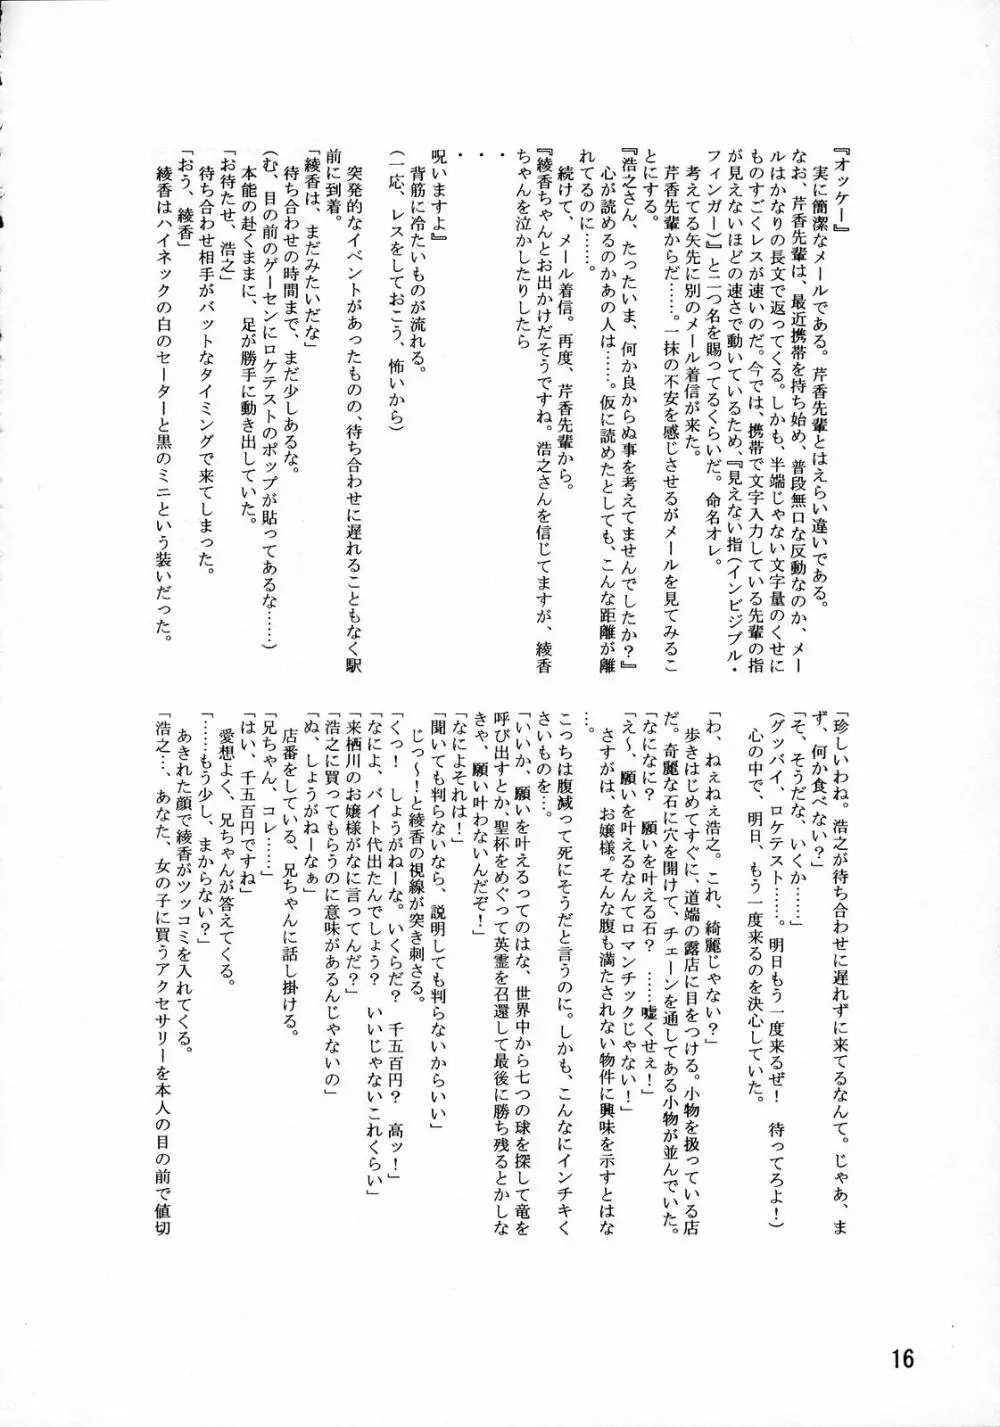 『オッケー』
　実に簡潔なメールである。芹香先輩とはえらい違いである。
　なお、芹香先輩は、最近携帯を持ち始め、普段無口な反動なのか、メー
ルはかなりの長文で返ってくる。しかも、半端じゃない文字量のくせに
ものすごくレスが速いのだ。今では、携帯で文字入力している先輩の指
が見えないほどの速さで動いているため、『見えない指（インビジブル・
フィンガー）』と二つ名を賜ってるくらいだ。命名オレ。
　考えてる矢先に別のメール着信が来た。
　芹香先輩からだ……。一抹の不安を感じさせるがメールを見てみるこ
とにする。
『浩之さん、たったいま、何か良からぬ事を考えてませんでしたか？』
　心が読めるのかあの人は……。仮に読めたとしても、こんな距離が離
れてるのに……。
　続けて、メール着信。再度、芹香先輩から。
『綾香ちゃんとお出かけだそうですね。浩之さんを信じてますが、綾香
ちゃんを泣かしたりしたら
・
・
・
呪いますよ』
　背筋に冷たいものが流れる。
（一応、レスをしておこう、怖いから）
　突発的なイベントがあったものの、待ち合わせに遅れることもなく駅
前に到着。
「綾香は、まだみたいだな」
　待ち合わせの時間まで、まだ少しあるな。
（む、目の前のゲーセンにロケテストのポップが貼ってあるな……）
　本能の赴くままに、足が勝手に動き出していた。
「お待たせ、浩之」
　待ち合わせ相手がバットなタイミングで来てしまった。
「おう、綾香」
　綾香はハイネックの白のセーターと黒のミニという装いだった。
「珍しいわね。浩之が待ち合わせに遅れずに来てるなんて。じゃあ、ま
ず、何か食べない？」
「そ、そうだな、いくか……」
（グッバイ、ロケテスト……。明日もう一度来るぜ！　待ってろよ！）
　心の中で、明日、もう一度来るのを決心していた。
「わ、ねぇねぇ浩之。これ、綺麗じゃない？」
　歩きはじめてすぐに、道端の露店に目をつける。小物を扱っている店
だ。奇麗な石に穴を開けて、チェーンを通してある小物が並んでいた。
「なになに？　願いを叶える石？　……嘘くせぇ！」
「え～、願いを叶えるなんてロマンチックじゃない！」
　さすがは、お嬢様。そんな腹も満たされない物件に興味を示すとはな
…。
こっちは腹減って死にそうだと言うのに。しかも、こんなにインチキく
さいものを…。
「いいか、願いを叶えるってのはな、世界中から七つの球を探して竜を
呼び出すとか、聖杯をめぐって英霊を召還して最後に勝ち残るとかしな
きゃ、願い叶わないんだぞ！」
「なによそれは！」
「聞いても判らないなら、説明しても判らないからいい」
　じつ～！と綾香の視線が突き刺さる。
「くっ！　しょうがねーな。いくらだ？　千五百円？　高ッ！」
「なによ、バイト代出たんでしょう？　いいじゃないこれくらい」
「来栖川のお嬢様がなに言ってんだ？」
「浩之に買ってもらうのに意味があるんじゃないの」
「ぬ、しょうがねーなぁ」
　店番をしている、兄ちゃんに話し掛ける。
「兄ちゃん、コレ……」
「はい、千五百円ですね」
　愛想よく、兄ちゃんが答えてくる。
「……もう少し、まからない？」
　あきれた顔で綾香がツッコミを入れてくる。
「浩之…、あなた、女の子に買うアクセサリーを本人の目の前で値切
16